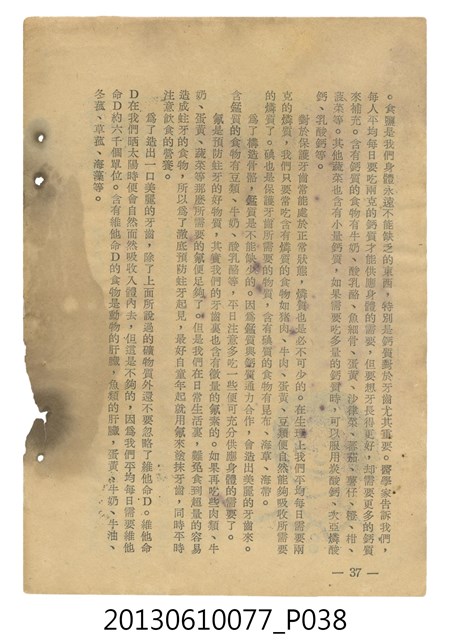 。食鹽是我們身體永遠不能缺乏的東西，特別是鈣質對於牙齒尤其需要。醫學家告訴我們，
每人平均每日要吃兩克的鈣質才能供應身體的需要，但要想牙長得更好，却需要更多的鈣質
來補充。含有鈣質的食物有牛奶、酸乳酪、魚細骨、蛋黃、沙律菜、蕃茄、薯仔、橙、柑、
菠菜等。其他蔬菜也含有小量鈣質，如果需要吃多量的鈣質時，可以服用炭酸鈣、次亞燐酸
鈣、乳酸鈣等。
對於保護牙齒常能處於正常狀態，燐質也是必不可少的。在生理上我們平均每日需要兩
克的燐質，我們只要常吃含有燐質的食物如猪肉、牛肉、蛋黃、豆類便自然能夠吸收所需要
的燐質了。碘也是保護牙齒所需要的物質，含有碘質的食物有昆布、海草、海帶。
為了構造骨骼，錳質是不能缺少的。因為錳質與鈣質通力合作，會造出美麗的牙齒來。
含錳質的食物有豆類、牛奶、酸乳酪等，平日注意多吃一些便可充分供應身體的需要了。
氟是預防蛀牙的好物質，其實我們的牙齒裏也含有微量的氟素的。如果再吃些肉類、牛
奶、蛋黃、蔬菜等那麽所需要的氟便足夠了。但是我們在日常生活裏，難免食到過量的容易
造成蛀牙的食物，所以為了澈底預防蛀牙起見，最好自童年起就用氟來塗抹牙齒，同時平時
注意飲食的營養。
為了造出一口美麗的牙齒，除了上面所說過的礦物質外還不要忽略了維他命D。維他命
D在我們晒太陽時便會自然而然吸收入體內去，但還是不夠的，因為我們平均每日需要維他
命D約六千個單位。含有維他命D的食物是動物的肝臟，魚類的肝臟，蛋黃、牛奶、牛油、
冬菰、草菰、海藻等。
— 37 —
20130610077_P038